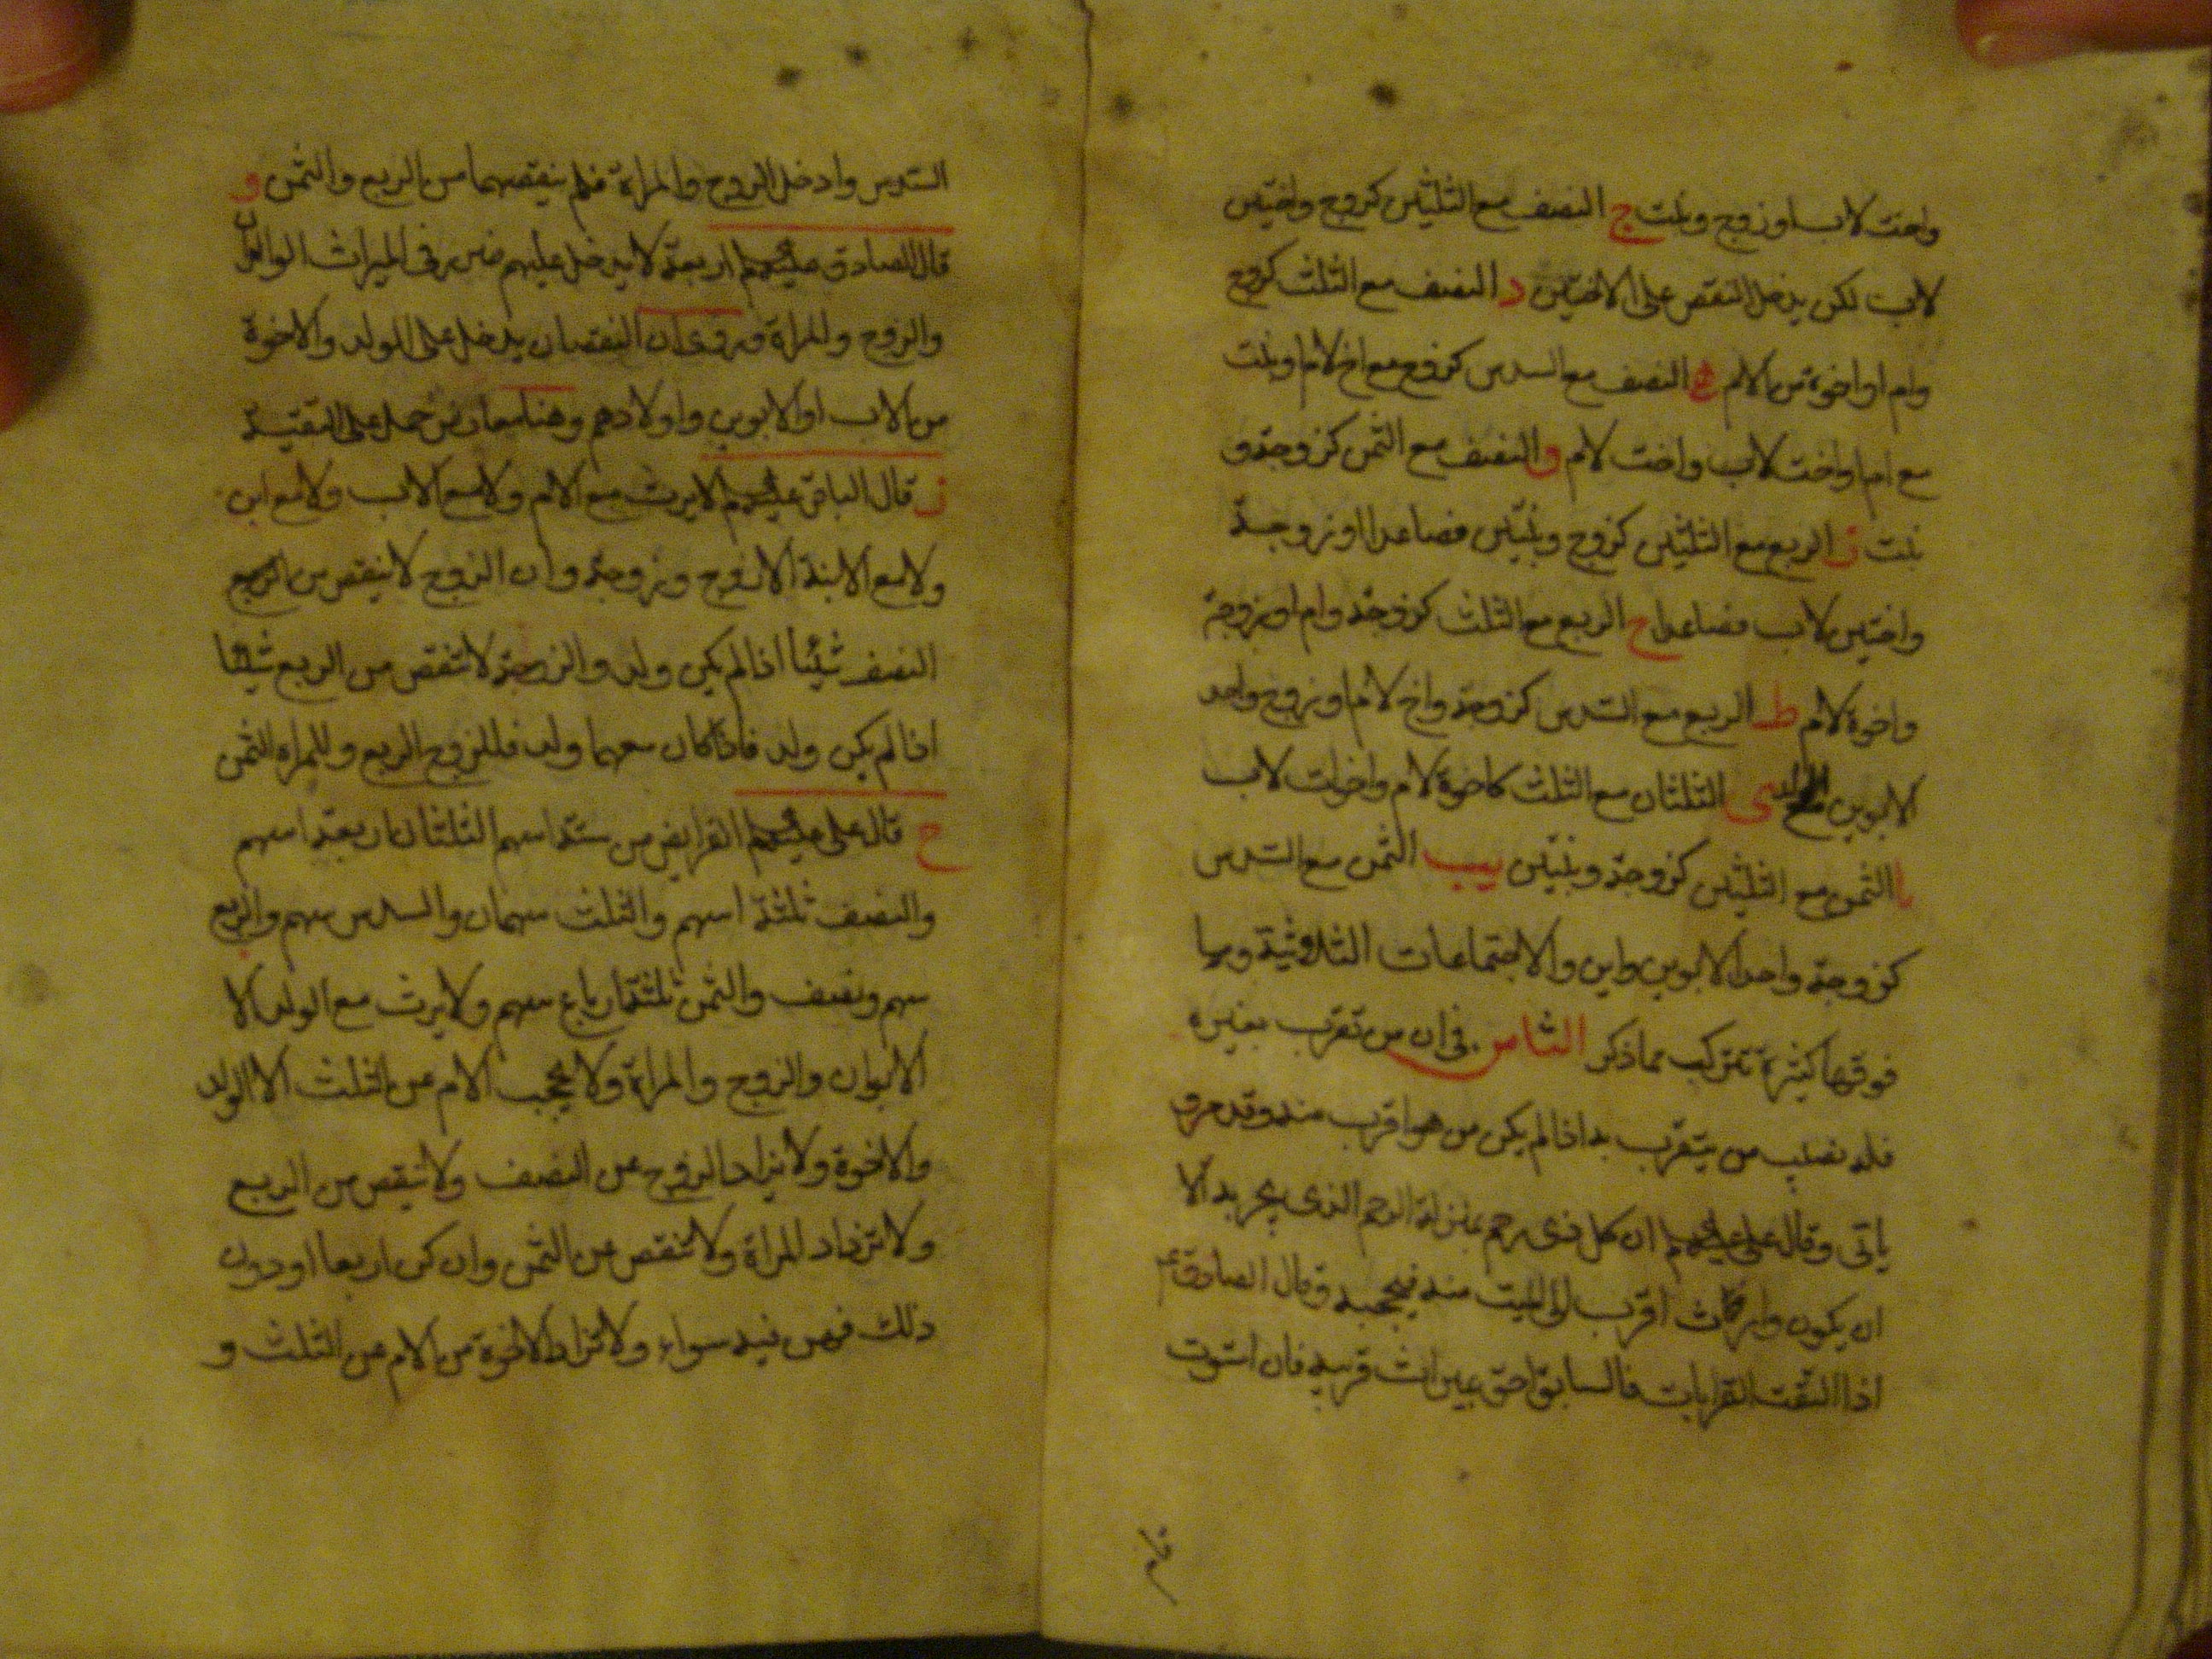 واخت لاب او زوج وبنت ج النصف مع الثلثين كزوج واختين
لاب لكن يدخل النقص على الاختين د النصف مع الثلث كزوج
وام او اخوة من الام ه النصف مع السدس كزوج مع اخ لام او بنت
مع ام او اخت لاب واخت لام و النصف مع الثمن كزوجة و
بنت ز الربع مع الثلثين كزوج وبنتين فصاعدا او زوجة
واختين لاب فصاعدا ح الربع مع الثلث كزوجة وام او زوجة
واخوة لام ط الربع مع السدس كزوجة واخ لام او زوج واحد
الابوين مع ى الثلثان مع الثلث كاخوة لام واخوات لاب
يا الثمن مع الثلثين كزوجة وبنتين يب الثمن مع السدس
كزوجة واحد الابوين وابن والاجتماعات الثلاثية وما
فوقها كثيرة تتركب مما ذكر الثامن في ان من تقرب بغيره
فله نصيب من يتقرب به اذا لم يكن من هو اقرب منه وقد مر و
ياتى وقال على عليهم ان كل ذى رحم بمنزلة الرحم الذى يجر به الا
ان يكون وارث اقرب الى الميت منه فيحجبه وقال الصادق ع
اذا التقت القرابات فالسابق احق بميراث قريبه فان استوت
السدس وادخل الزوج والمراة فلم ينقصهما من الربع والثمن و
قال الصادق عليهم اربعة لا يدخل عليهم ضرر فى الميراث الوالدان
والزوج والمراة وروى ان النقصان يدخل على الولد والاخوة
من الاب او الابوين واولادهم وهنا معارض حمل على التقية
ز قال الباقر عليهم لا يرث مع الام ولا مع الاب ولا مع ابن
ولا مع الابنة الا زوج وزوجة وان الزوج لا ينقص من
النصف شيئا اذا لم يكن ولد والزوجة لا تنقص من الربع شيئا
اذا لم يكن ولد فاذا كان معهما ولد فللزوج الربع وللمراه الثمن
ح قال على عليهم الفرايض من ستة اسهم الثلثان اربعة اسهم
والنصف ثلثة اسهم والثلث سهمان والسدس سهم والربع
سهم ونصف والثمن ثلثة ارباع سهم ولا يرث مع الولد الا
الابوان والزوج والمراة ولا يحجب الام عن الثلث الا الولد
والاخوة ولا يزاد الزوج عن النصف ولا ينقص من الربع
ولا تزداد المراة ولا تنقص عن الثمن وان كن اربعا او دون
ذلك فهن فيه سواء ولا تزاد الاخوة من الام عن الثلث و